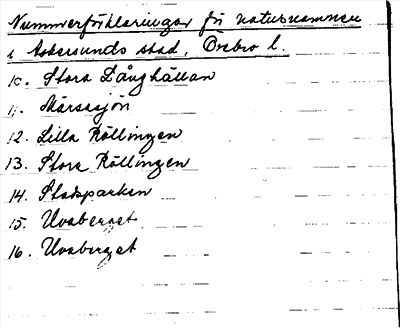 Nummerförklaringar för naturnamnen
i Askersunds stad, Örebro l.
10. Stora Långhällan
11. Märsasjön
12. Lilla Kållingen
13. Stora Kållingen
14. Stadsparken
15. Uvaberget
16. Uvaberget